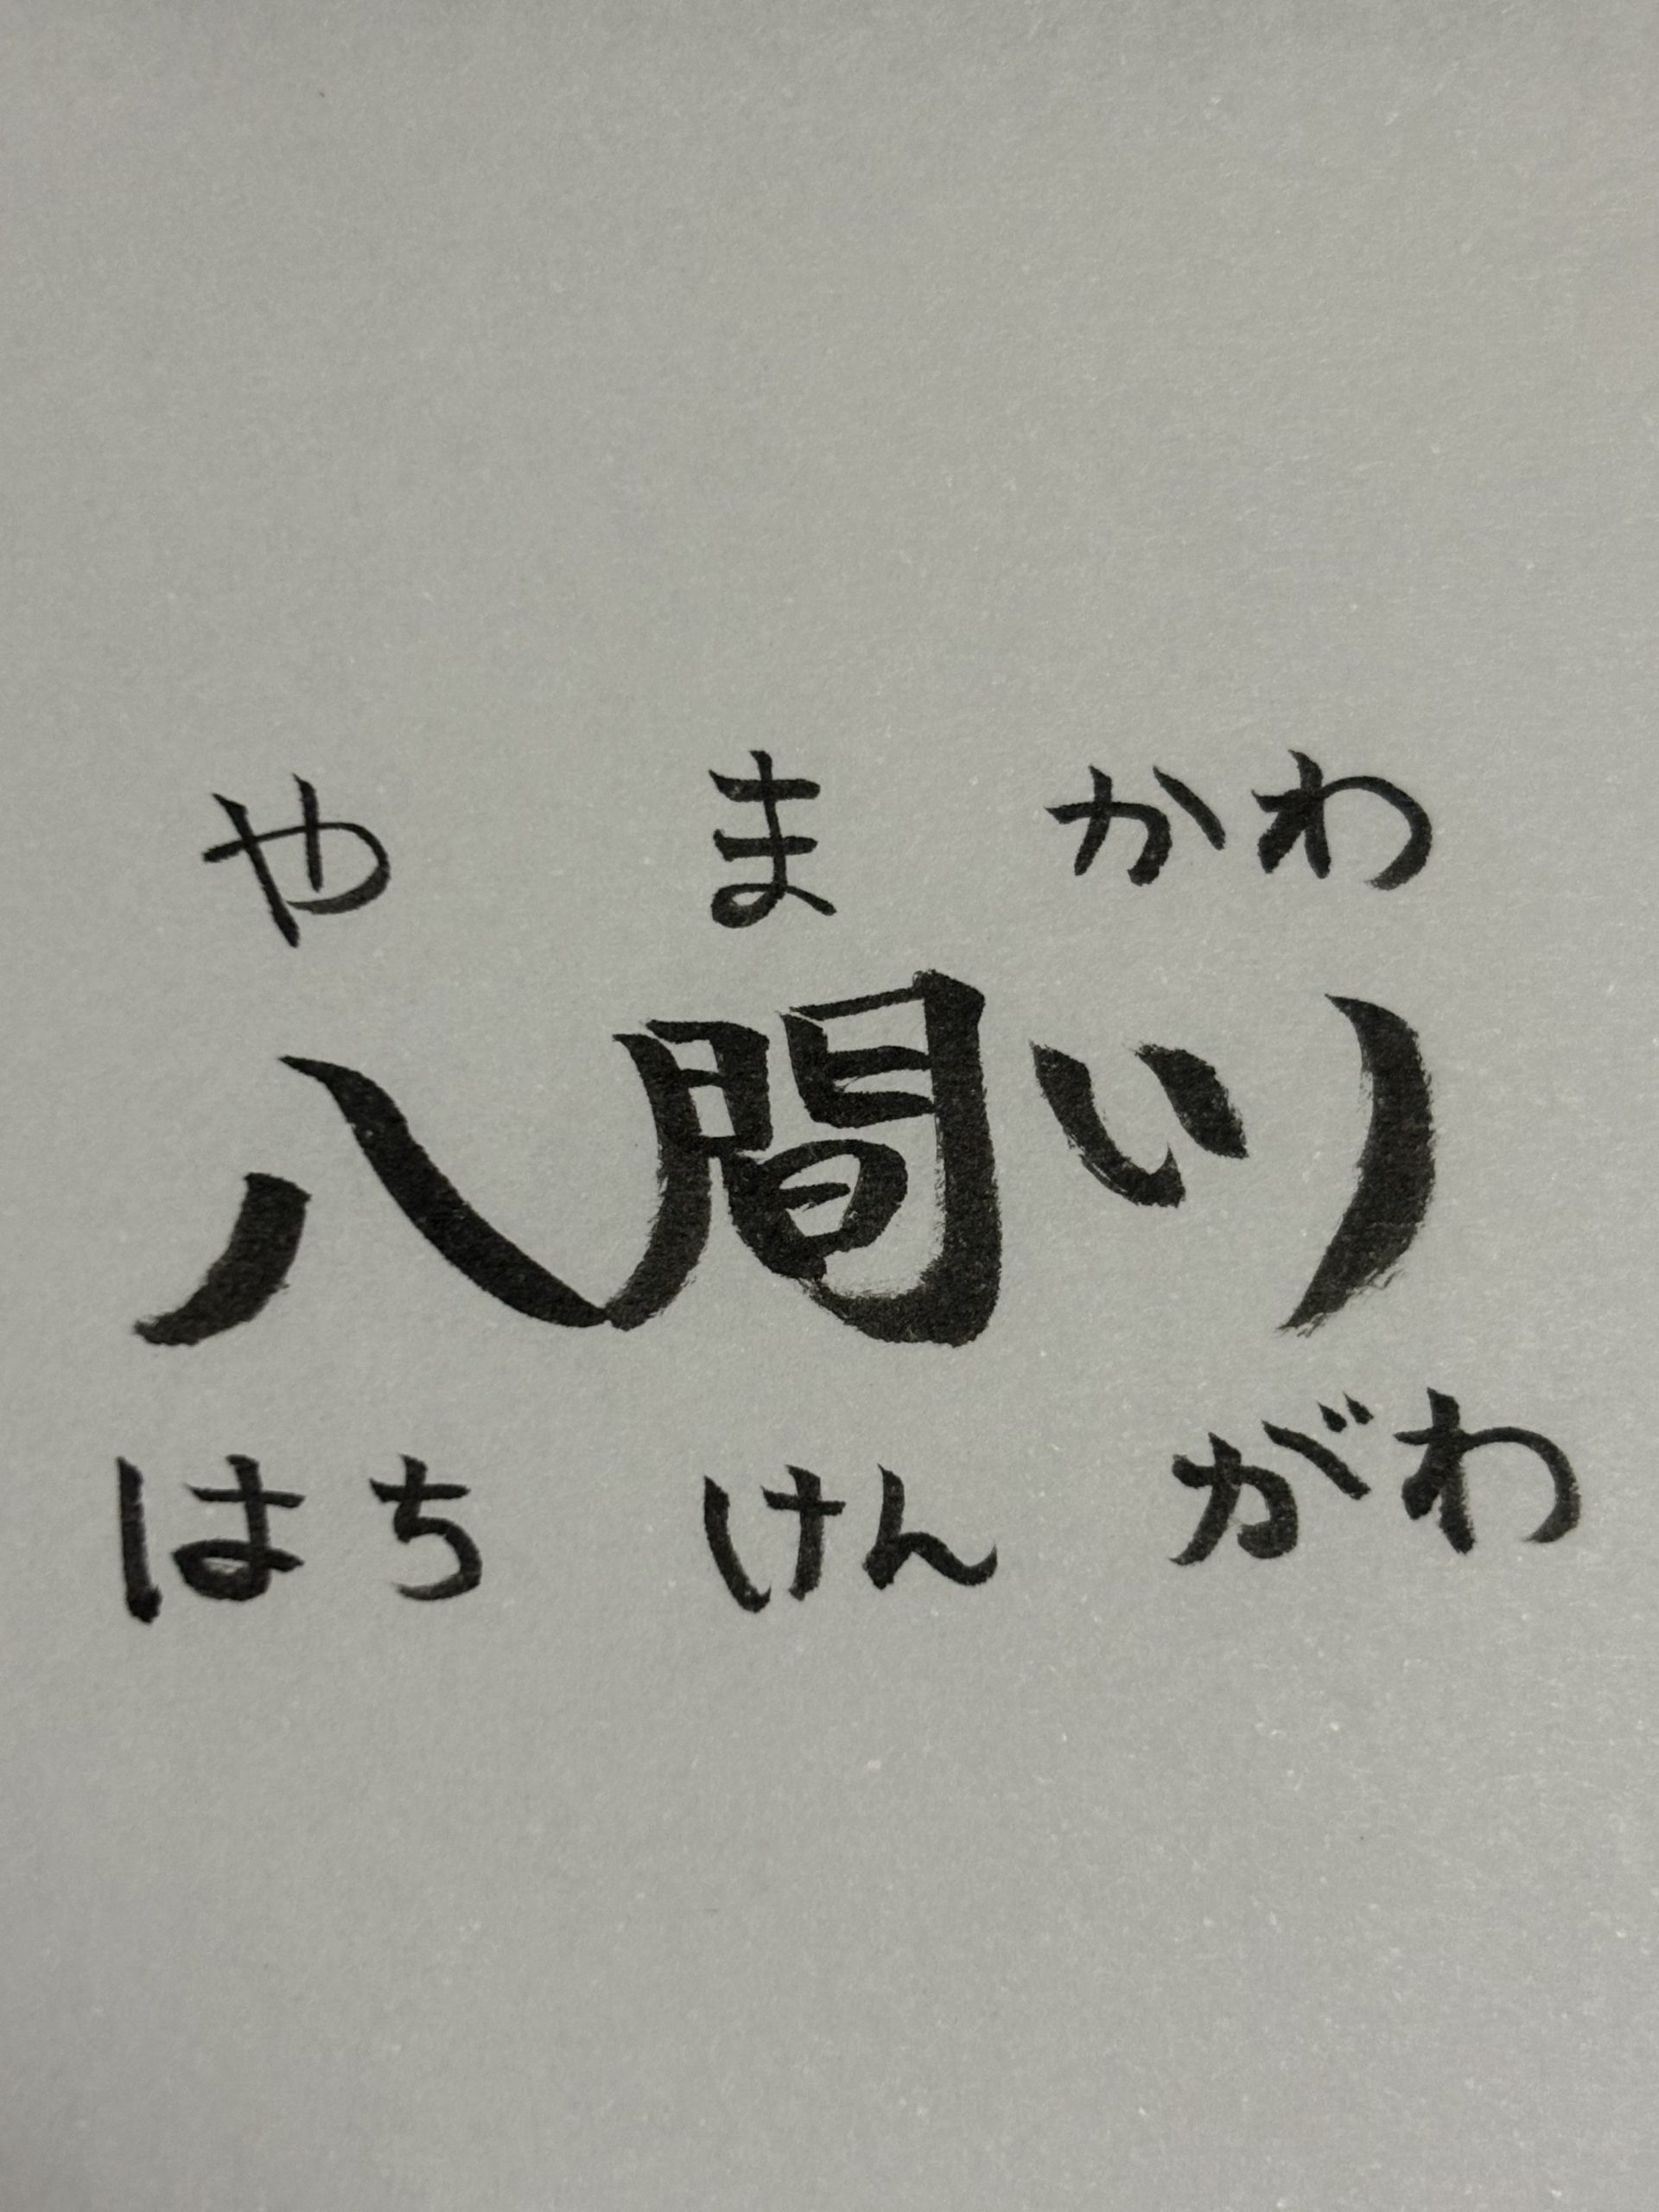 やまかわ
八間川
はちけんがわ